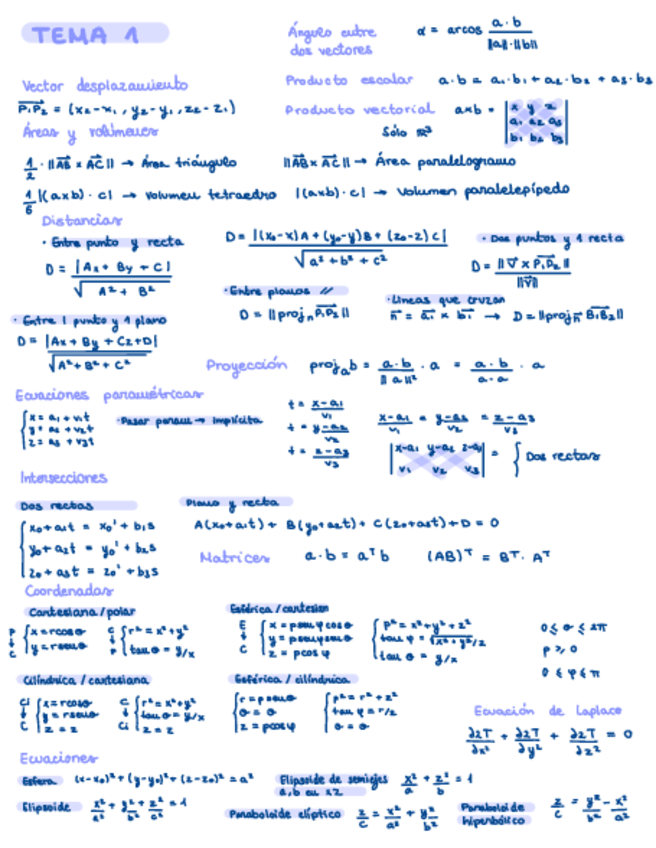 TEMA 1
Ángulo entre dos vectores α = arcos a·b / ||a||·||b||
Vector desplazamiento
P₁P₂ = (x₂-x₁, y₂-y₁, z₂-z₁)
Producto escalar a·b = a₁·b₁ + a₂·b₂ + a₃·b₃
Producto vectorial a×b = | x y z |
| a₁ a₂ a₃ |
| b₁ b₂ b₃ |
Sólo ℝ³
Áreas y volúmenes
1/2 · ||AB × AC|| → Área triángulo ||AB × AC|| → Área paralelogramo
1/6 |(a×b)·c| → Volumen tetraedro |(a×b)·c| → Volumen paralelepípedo
Distancias
· Entre punto y recta
D = |Ax + By + C| / √A² + B²
D = |(x₀-x)A + (y₀-y)B + (z₀-z)C| / √a² + b² + c²
· Dos puntos y 1 recta
D = ||V × P₁P₂|| / ||V||
· Entre planos //
D = ||projₙ P₁P₂||
· Líneas que cruzan
n = a₁ × b₁ → D = ||projₙ B₁B₂||
· Entre 1 punto y 1 plano
D = |Ax + By + Cz + D| / √A² + B² + C²
Proyección projₐb = a·b / ||a||² · a = a·b / a·a · a
Ecuaciones paramétricas
x = a₁ + v₁t
y = a₂ + v₂t
z = a₃ + v₃t
· Pasar param → implícita
t = x-a₁ / v₁
t = y-a₂ / v₂
t = z-a₃ / v₃
x-a₁ / v₁ = y-a₂ / v₂ = z-a₃ / v₃
| x-a₁ y-a₂ z-a₃ |
| v₁ v₂ v₃ | = { Dos rectas
Intersecciones
Dos rectas
x₀+a₁t = x₀' + b₁s
y₀+a₂t = y₀' + b₂s
z₀+a₃t = z₀' + b₃s
Plano y recta
A(x₀+a₁t) + B(y₀+a₂t) + C(z₀+a₃t) + D = 0
Matrices a·b = aᵀb (AB)ᵀ = Bᵀ·Aᵀ
Coordenadas
Cartesiana/polar
P ↓ C { x = rcosθ
y = rsenθ
C ↓ P { r² = x²+y²
tanθ = y/x
Esférica/cartesian
E ↓ C { x = ρsenφcosθ
y = ρsenφsenθ
z = ρcosφ
ρ² = x²+y²+z²
tanφ = √x²+y²/z
tanθ = y/x
0 ≤ θ ≤ 2π
ρ ≥ 0
0 ≤ φ ≤ π
Cilíndrica/cartesiana
Ci ↓ C { x = rcosθ
y = rsenθ
z = z
C ↓ Ci { r² = x²+y²
tanθ = y/x
z = z
Esférica/cilíndrica
r = ρsenθ
θ = θ
z = ρcosφ
ρ² = r² + z²
tanφ = r/z
θ = θ
Ecuación de Laplace
∂2T/∂x² + ∂2T/∂y² + ∂2T/∂z² = 0
Ecuaciones
Esfera (x-x₀)² + (y-y₀)² + (z-z₀)² = a²
Elipsoide de semiejes a,b eu xz x²/a + z²/b = 1
Elipsoide x²/a² + y²/b² + z²/c² = 1
Paraboloide elíptico z/c = x²/a² + y²/b²
Paraboloide hiperbólico z/c = y²/b² - x²/a²